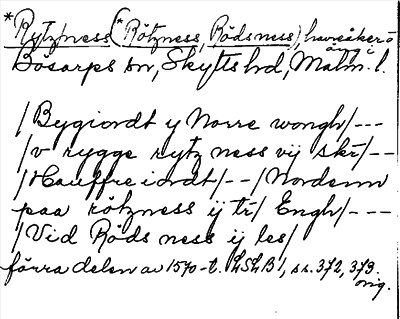 *Rytzness (*Rötzness, Rödsness), havsåker o äng i
Bösarps sn, Skytts hd, Malm. l.
/Bygiordt y Norre wongh/---
/v rygge rytz ness vij skr/--
/Hauffre iordt/--/Nordenn
paa rötzness ij tr/ Engh/---
/Vid Röds ness ij les/
förra delen av 1570-t. LSLB1, ss. 372, 373.
orig.